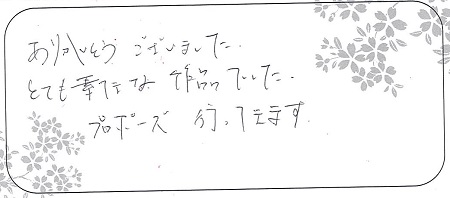 ありがとうございました.
とても素敵な作品でした.
プロポーズ 行ってきます.